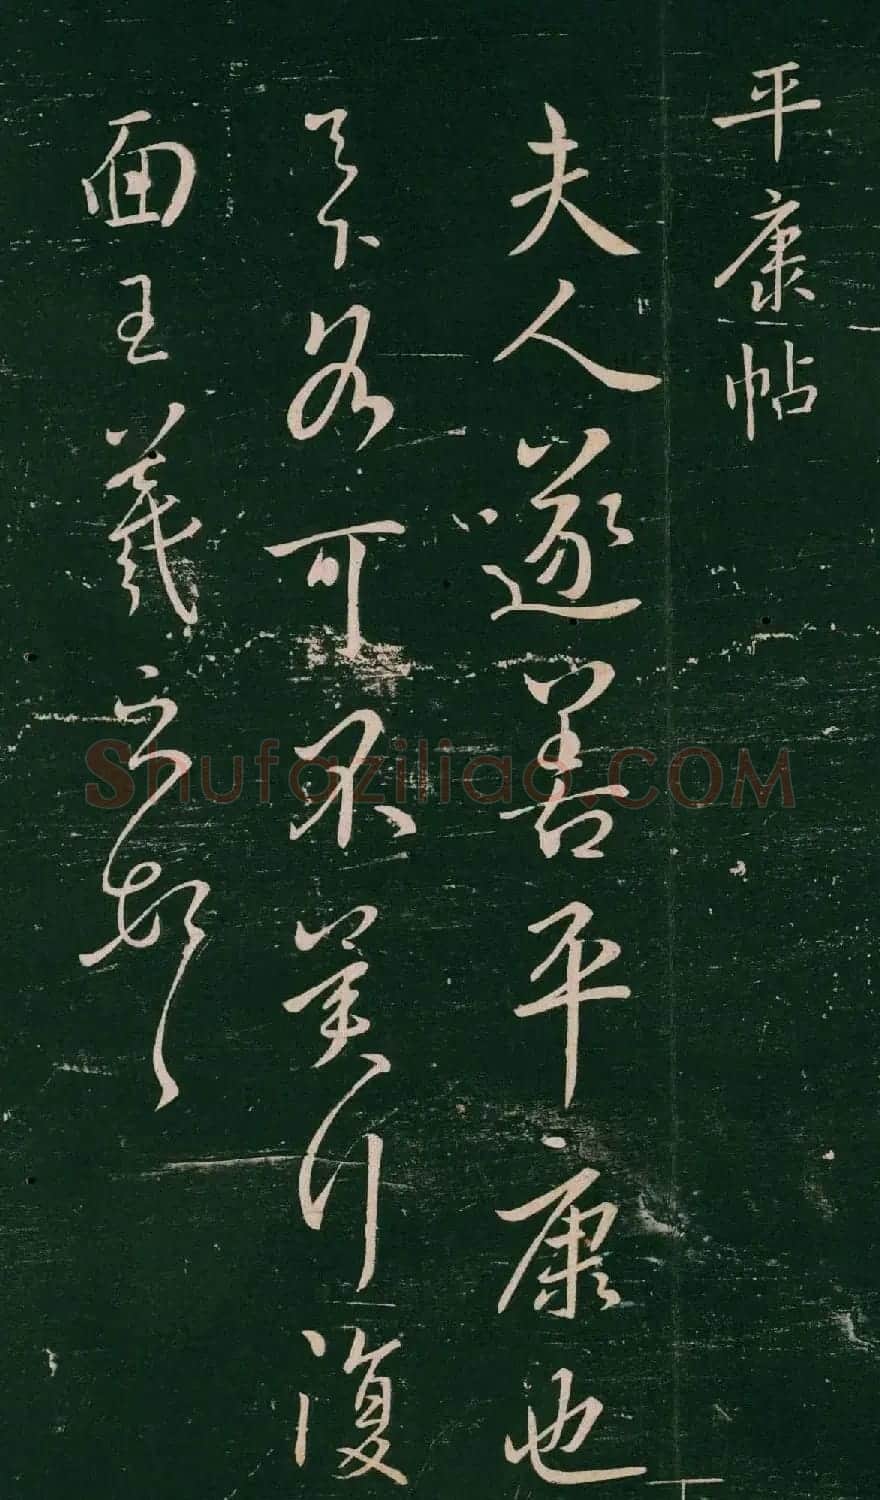 平康帖
夫人遂善平康也
足下各可不冀行復
面王羲之頓首
Shufaziliao.COM